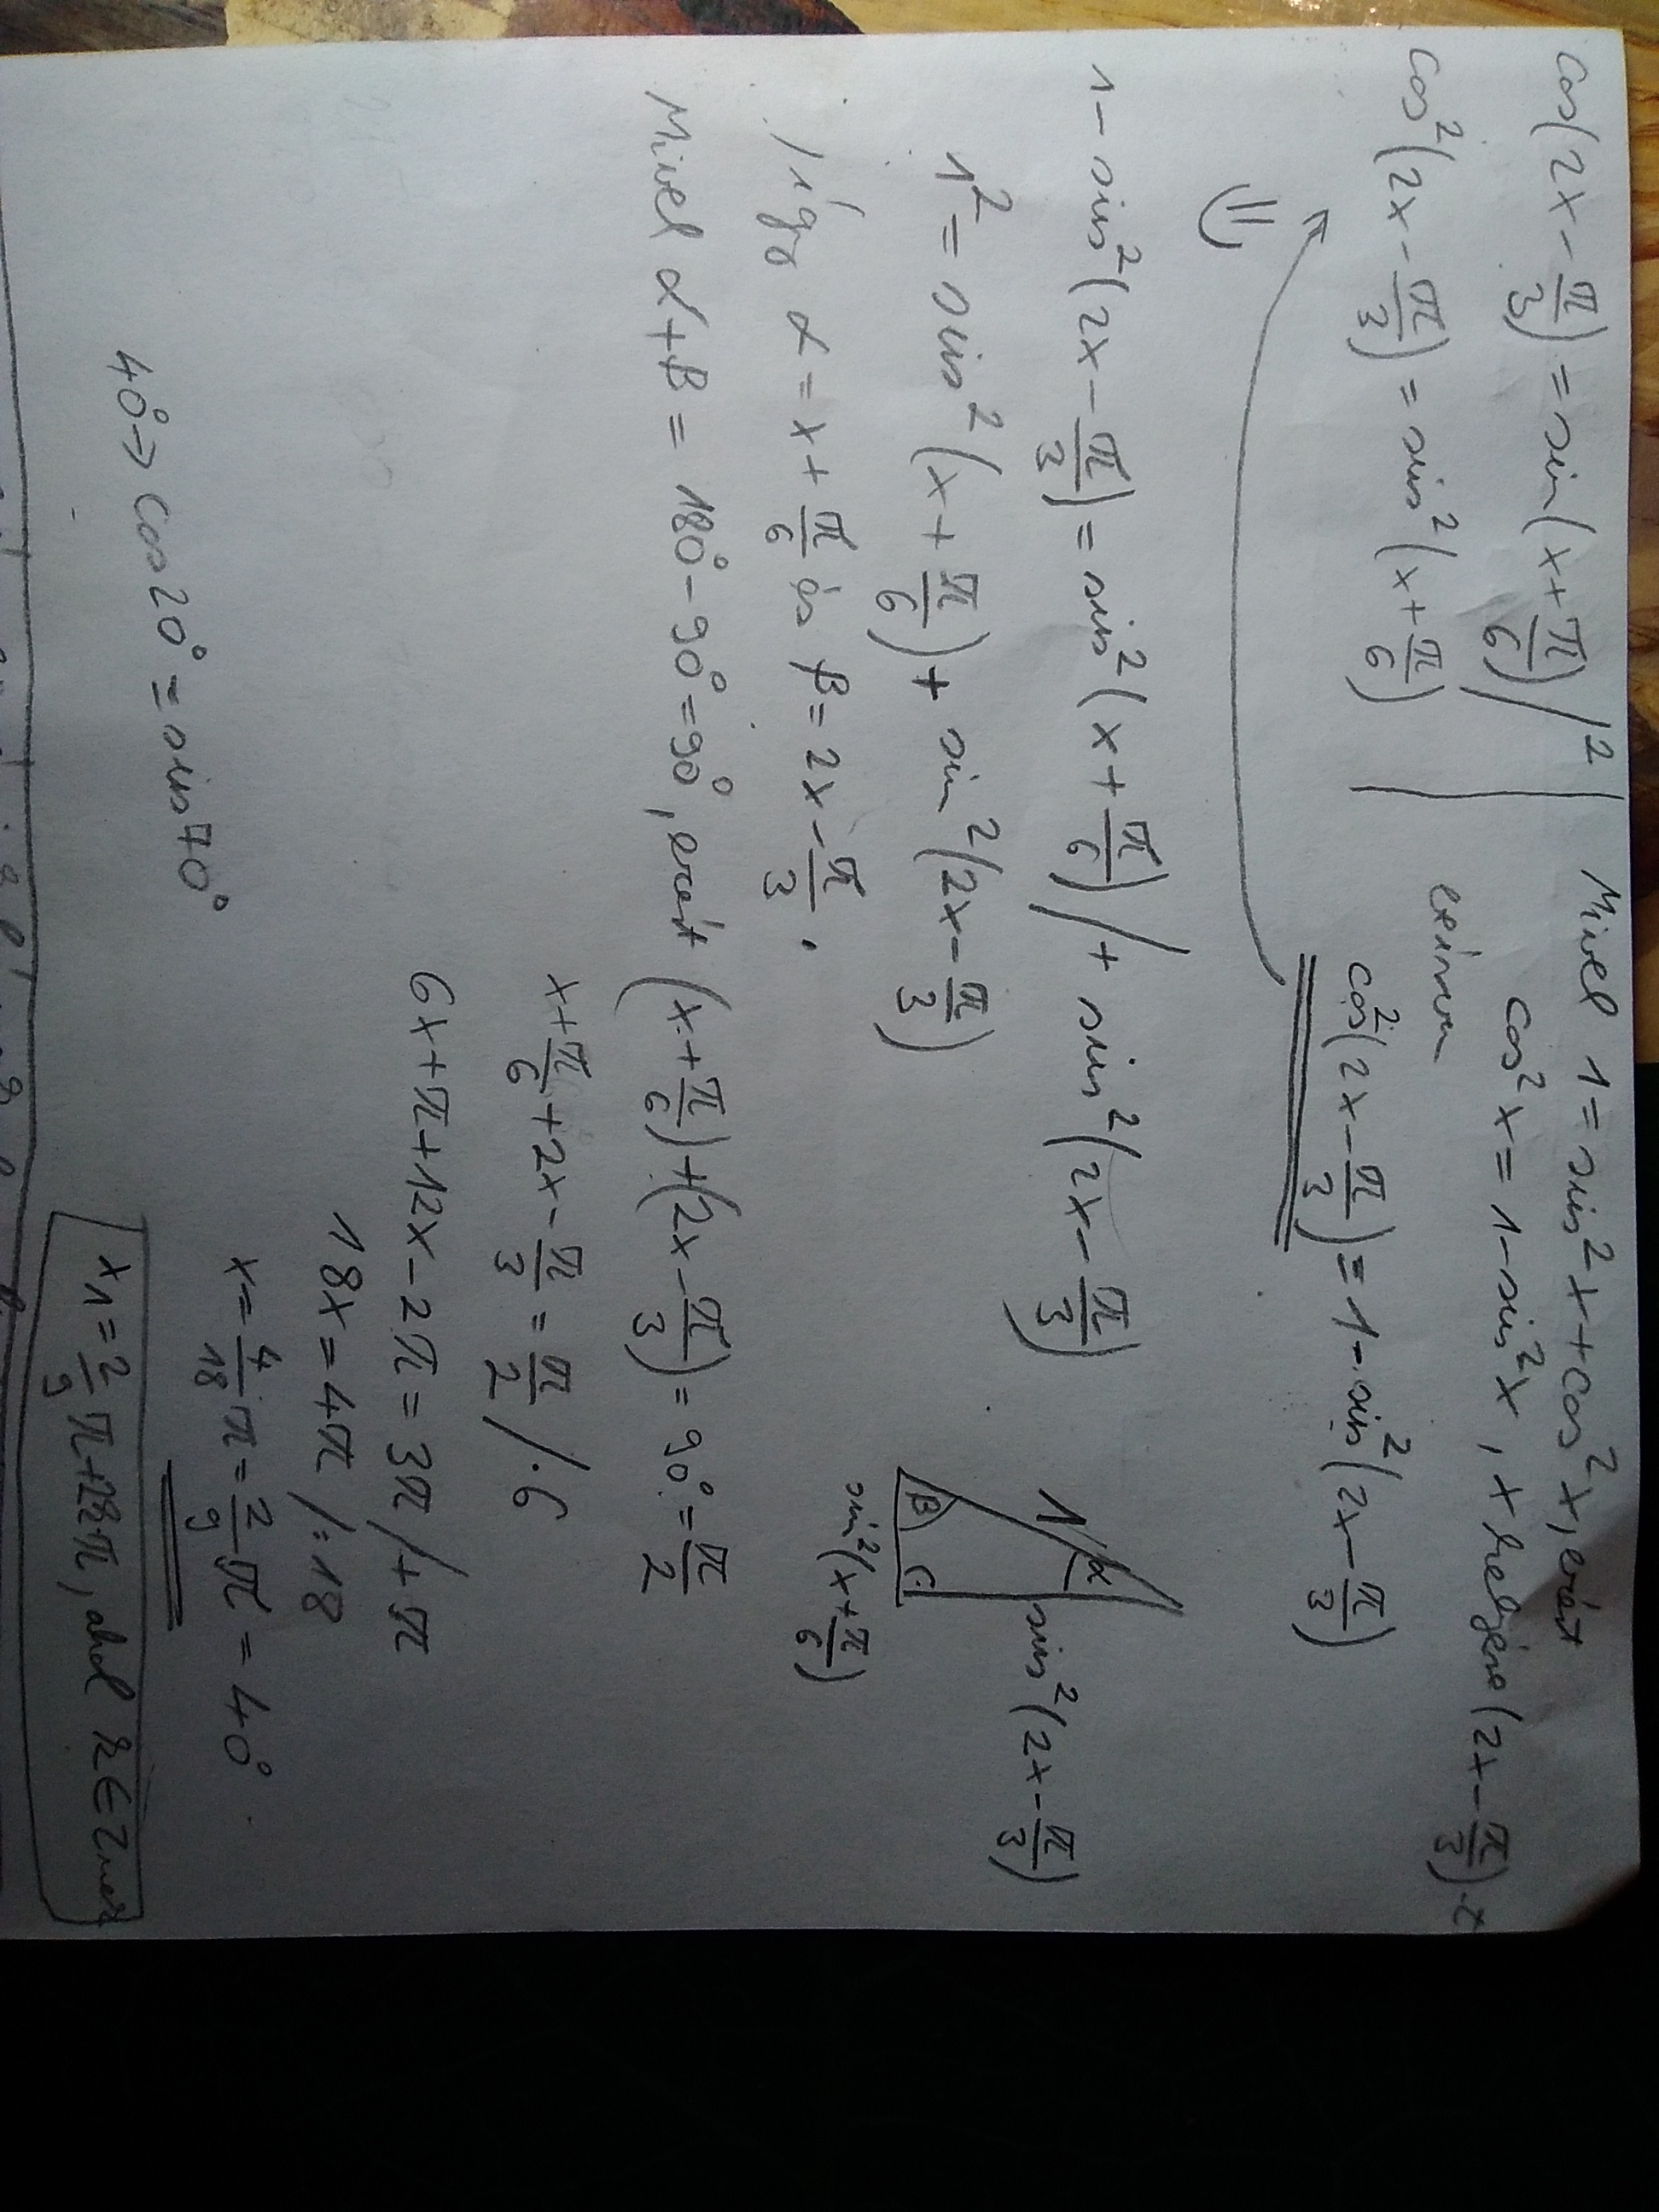 cos(2x - π/3) = sin(x + π/6) /²
Mivel 1 = sin²x + cos²x, ezért
cos²x = 1 - sin²x, x helyére (2x - π/3)-t
cos²(2x - π/3) = sin²(x + π/6)
cos²(2x - π/3) = 1 - sin²(2x - π/3)
1 - sin²(2x - π/3) = sin²(x + π/6) / + sin²(2x - π/3)
1² = sin²(x + π/6) + sin²(2x - π/3)
1
α
sin²(2x - π/3)
β
sin²(x + π/6)
Így α = x + π/6 és β = 2x - π/3.
Mivel α + β = 180° - 90° = 90°, ezért (x + π/6) + (2x - π/3) = 90° = π/2
x + π/6 + 2x - π/3 = π/2 / ·6
6x + π + 12x - 2π = 3π / + π
18x = 4π / :18
x = 4/18 π = 2/9 π = 40°
40° → cos20° = sin70°
x₁ = 2/9 π + 2kπ, ahol k ∈